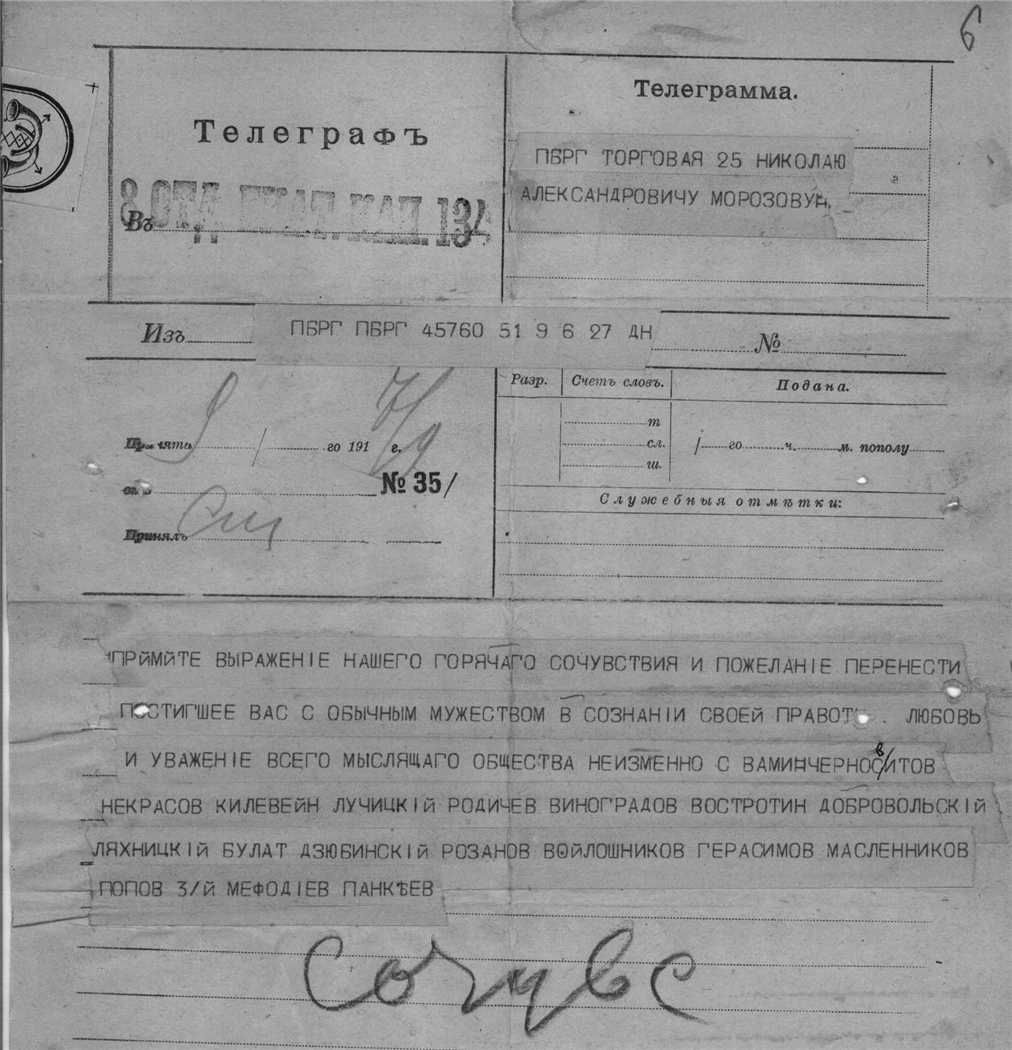 6
Телеграфъ
Телеграмма.
ПБРГ ТОРГОВАЯ 25 НИКОЛАЮ
АЛЕКСАНДРОВИЧУ МОРОЗОВУ
Въ 8 ОТД. 134
Изъ ПБРГ ПБРГ 45760 51 9 6 27 ДН №
Разр. Счетъ словъ. Подана.
Принято 9 / го 191 г.
т
сл.
ш.
/ го ч. м. пополу
№ 35/
Служебныя отмѣтки:
Принялъ
ПРИМИТЕ ВЫРАЖЕНІЕ НАШЕГО ГОРЯЧАГО СОЧУВСТВИЯ И ПОЖЕЛАНІЕ ПЕРЕНЕСТИ
ПОСТИГШЕЕ ВАС С ОБЫЧНЫМ МУЖЕСТВОМ В СОЗНАНІИ СВОЕЙ ПРАВОТ . ЛЮБОВЬ
И УВАЖЕНІЕ ВСЕГО МЫСЛЯЩАГО ОБЩЕСТВА НЕИЗМЕННО С ВАМИ ЧЕРНОСВИТОВ
НЕКРАСОВ КИЛЕВЕЙН ЛУЧИЦКІЙ РОДИЧЕВ ВИНОГРАДОВ ВОСТРОТИН ДОБРОВОЛЬСКІЙ
ЛЯХНИЦКІЙ БУЛАТ ДЗЮБИНСКІЙ РОЗАНОВ ВОЙЛОШНИКОВ ГЕРАСИМОВ МАСЛЕННИКОВ
ПОПОВ 3/Й МЕФОДІЕВ ПАНКѢЕВ
Сочувс